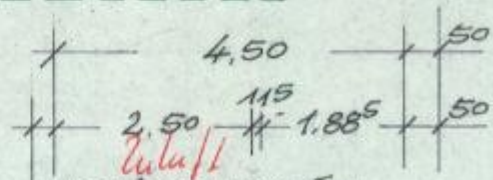 4,50 50
2.50 115 1.88⁵ 50
Zuluft